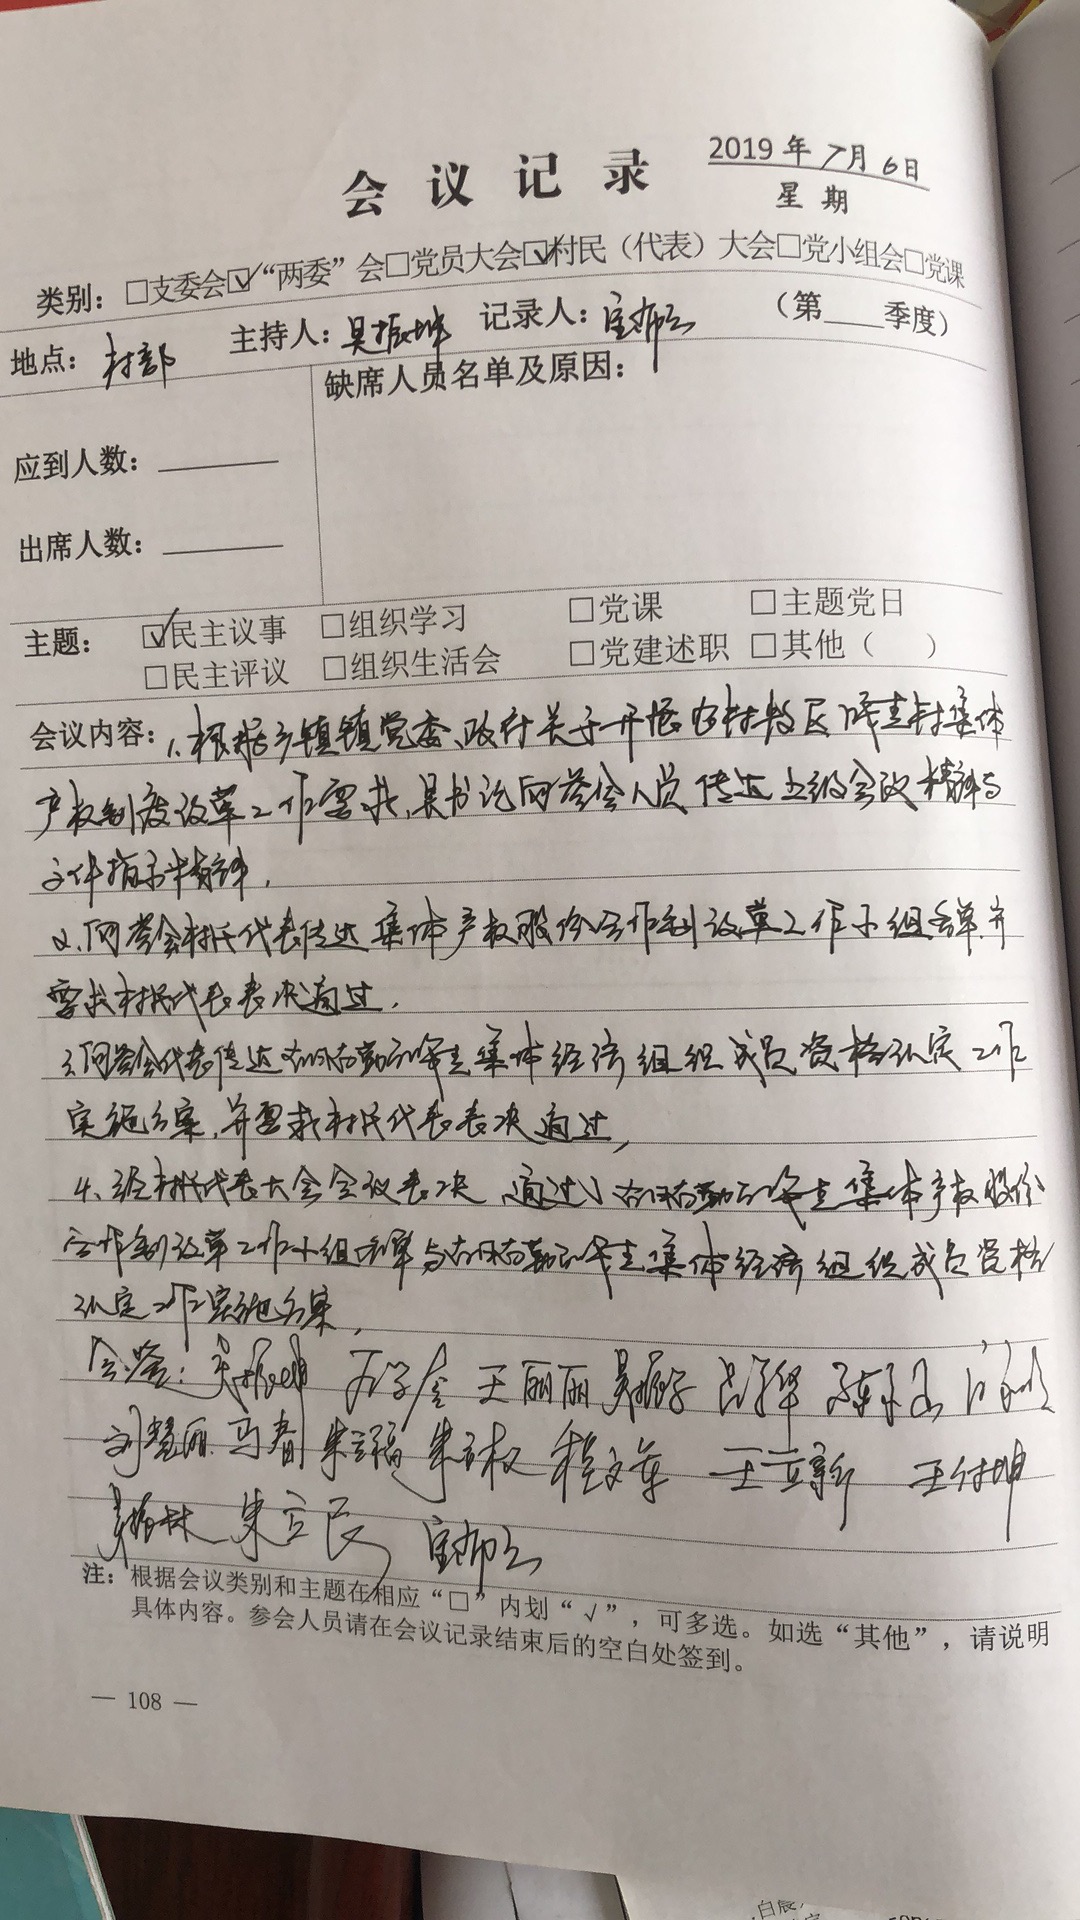 会议记录
2019年7月6日
星期
类别：□支委会☑“两委”会□党员大会☑村民（代表）大会□党小组会□党课
地点：村部 主持人：吴振坤 记录人： （第____季度）
缺席人员名单及原因：
应到人数：
出席人数：
主题： ☑民主议事 □组织学习 □党课 □主题党日
□民主评议 □组织生活会 □党建述职 □其他（ ）
会议内容：1、根据乡镇镇党委、政府关于开展农村牧区集体
产权制度改革工作要求，吴书记向参会人员传达上级会议精神与
文件指示精神。
2、向参会村民代表传达集体产权股份合作制改革工作小组名单，并
要求村民代表表决通过。
3、向参会代表传达集体经济组织成员资格认定工作
实施方案，并要求村民代表表决通过，
4、经村民代表大会会议表决，通过了集体产权股份
合作制改革工作小组名单与集体经济组织成员资格
认定工作实施方案，
会签：吴振坤 王丽丽
刘慧丽 马春 朱立福 朱立权 程文军 王立新 王付坤
朱立民
注：根据会议类别和主题在相应“□”内划“√”，可多选。如选“其他”，请说明
具体内容。参会人员请在会议记录结束后的空白处签到。
— 108 —